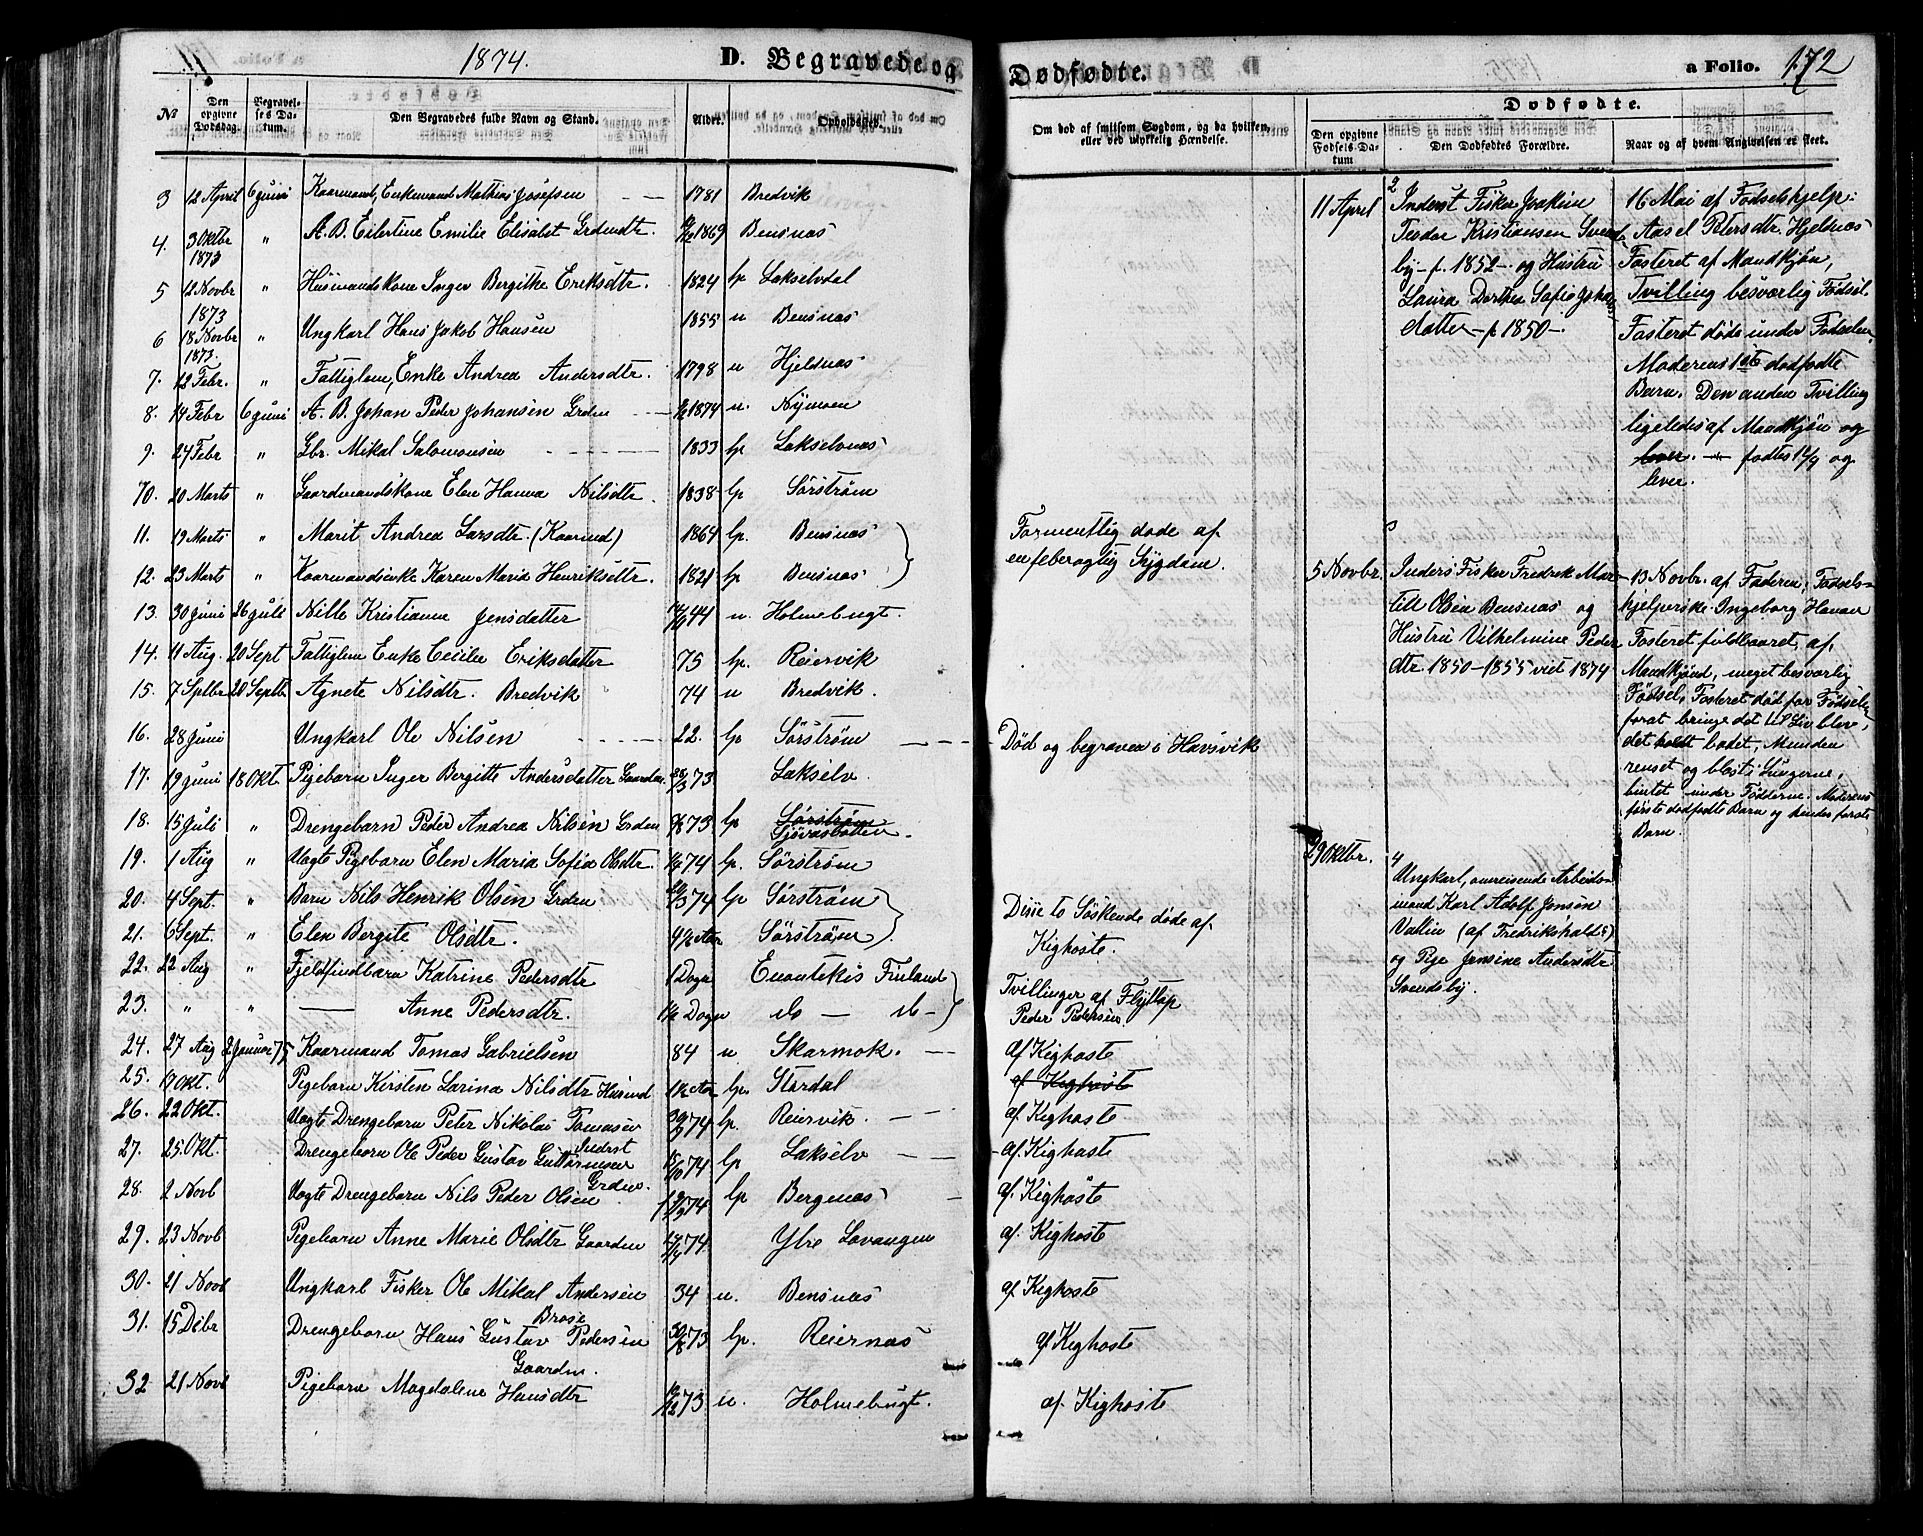 1874. D. Begravede og
No Den opgivne Dødsdag. Begravelses Datum. Den Begravedes fulde Navn og Stand. Alder. Opholdssted.
3 12 April 6 Juni Kaarmand, Enkemand Mathias Josefsen 1781 Bredvik
4. 3 Oktbr 1873 " A. B. Eilertine Emilie Elisabet Grdmdtr. 1869 Bensnæs
5 12 Novbr 1873 " Husmandskone Inger Bergitte Eriksdtr. 1824 lp Lakselvdal
6 18 Novbr 1873. " Ungkarl Hans Jakob Hansen 1855 u Bensnæs
7. 12 Febr. " Fattiglem, Enke Andrea Andersdtr. 1798 u Hjelnæs
8. 14 Febr 6 Juni A. B. Johan Peder Johansen Grdm 1874 u. Nymoen
9. 24 Febr " Gbr. Mikal Salomonsen 1833 lp Lakselvnæs
10. 20 Marts " Gaardmandskone Elen Hanna Nilsdtr. 1838 lp Sørstrøm
11. 19 Marts " Marit Andrea Larsdtr. (Kaarmd) 1864 lp. Bensnæs
12. 23 Marts " Kaarmandsenke Karen Maria Henriksdtr. 1821 lp Bensnæs
13. 30 Juni 26 Juli Nille Kristianna Jensdatter 44 u. Holmebugt.
14. 11 Aug. 20 Sept Fattiglem Enke Cecilie Eriksdatter 75 lp. Reiervik
15. 7 Septbr 20 Septb Agnete Nilsdtr. Bredvik 74 u Bredvik.
16. 28 Juni Ungkarl Ole Nilsen 22. lp Sørstrøm
17. 19 Juni 18 Okt. Pigebarn Inger Bergitte Andersdatter Gaardm 73 Lakselv.
18. 15 Juli " Drengebarn Peder Andrea Nilsen Grdm 73 lp Sørstrøm
Sjøvasbotten.
19. 1 Aug " Uægte Pigebarn Elen Maria Sofia Olsdtr. 74 lp. Sørstrøm
20. 4 Sept. " Barn Nils Henrik Olsen Grdm 74 lp Sørstrøm
21. 6 Sept. " Elen Bergite Olsdtr. 4½ Aar Sørstrøm
22. 22 Aug " Fjeldfindbarn Katrine Pedersdtr 1 Døgn Enontekis Finland
23. " " Anne Pedersdtr. 1½ Døgn do — do —
24. 27 Aug 2 Januar 75 Kaarmand Tomas Gabrielsen 84 u Skarmok.
25. 17 Okt. Pigebarn Kirsten Larina Nilsdtr Husmd 1½ Aar lp. Stordal
26. 22 Okt. Uægte Drengebarn Peter Nikolai Tomasen 74 lp. Reiervik.
27. 25 Okt. Drengebarn Ole Peder Gustav Guttormsen Inderst 74 lp Lakselv
28. 2 Novb Uægte Drengebarn Nils Peder Olsen Grdm. 74 lp Bergnæs
29. 23 Novb Pigebarn Anne Marie Olsdtr Gaardm 74. Ytre Lavangen
30. 21 Novb Ungkarl Fisker Ole Mikal Andersen 34 u. Bensnæs
31. 15 Debr Drengebarn Hans Gustav Pedersen 73 lp. Reiernæs
32 21 Novb Pigebarn Magdalene Hansdtr Gaardm. 73 u. Holmebugt.
Dødfødte. a Folio. 172
Om død af smitsom Sygdom, og da hvilken, eller ved ulykkelig Hændelse.
Dødfødte.
Den opgivne Fødsels-Datum Den Dødfødtes Forældre. Naar og af hvem Angivelsen er skeet.
Formentlig døde af
en feberagtig Sygdom.
Død og begraven i Havsvik
Disse to Søskende døde af
Kighoste.
Tvillinger af Flytlap
Peder Pedersen
af Kighoste
af Kighoste
af Kighoste
af. Kighoste
af. Kighoste
af. Kighoste
af Kighoste
af Kighoste
af. Kighoste
11 April
2
Inderst Fisker Joakim
Teodor Kristiansen Svends
by - f. 1852 - og Hustru
Laura Dorthea Sofie Johans
datter - f 1850 -
16 Mai af Fødselshjelp:
Aasel Petersdtr. Hjelnæs
Fosteret af Mandkjøn,
Tvilling besværlig Fødsel.
Fosteret døde under Fødselen.
Moderens 1ste dødfødte
Barn. Den anden Tvilling
ligeledes af Mandkjøn og
lever. fødtes 12/4 og
lever.
5 Novbr.
3
Inders Fisker Fredrik Mar-
till Olsen Bensnæs og
Hustru Vilhelmine Peder
dtr. 1850 - 1855 viet 1874
13 Novbr. af Faderen, Fødsels-
hjelperske Ingeborg Hanna
Fosteret fuldbaaret, af
Mandkjønd, meget besværlig
Fødsel, Fosteret død før Fødselen
forat bringe det til Liv blev
det badet, Munden
renset og blæst i Lungerne,
børstet under Fødderne. Moderens
første dødfødte Barn og hendes første
Barn.
29 Oktbr.
4
Ungkarl, omreisende Arbeids-
mand Karl Adolf Jensen
Vallin (af Fredrikshald)
og Pige Jensine Andersdtr
Svendsby.